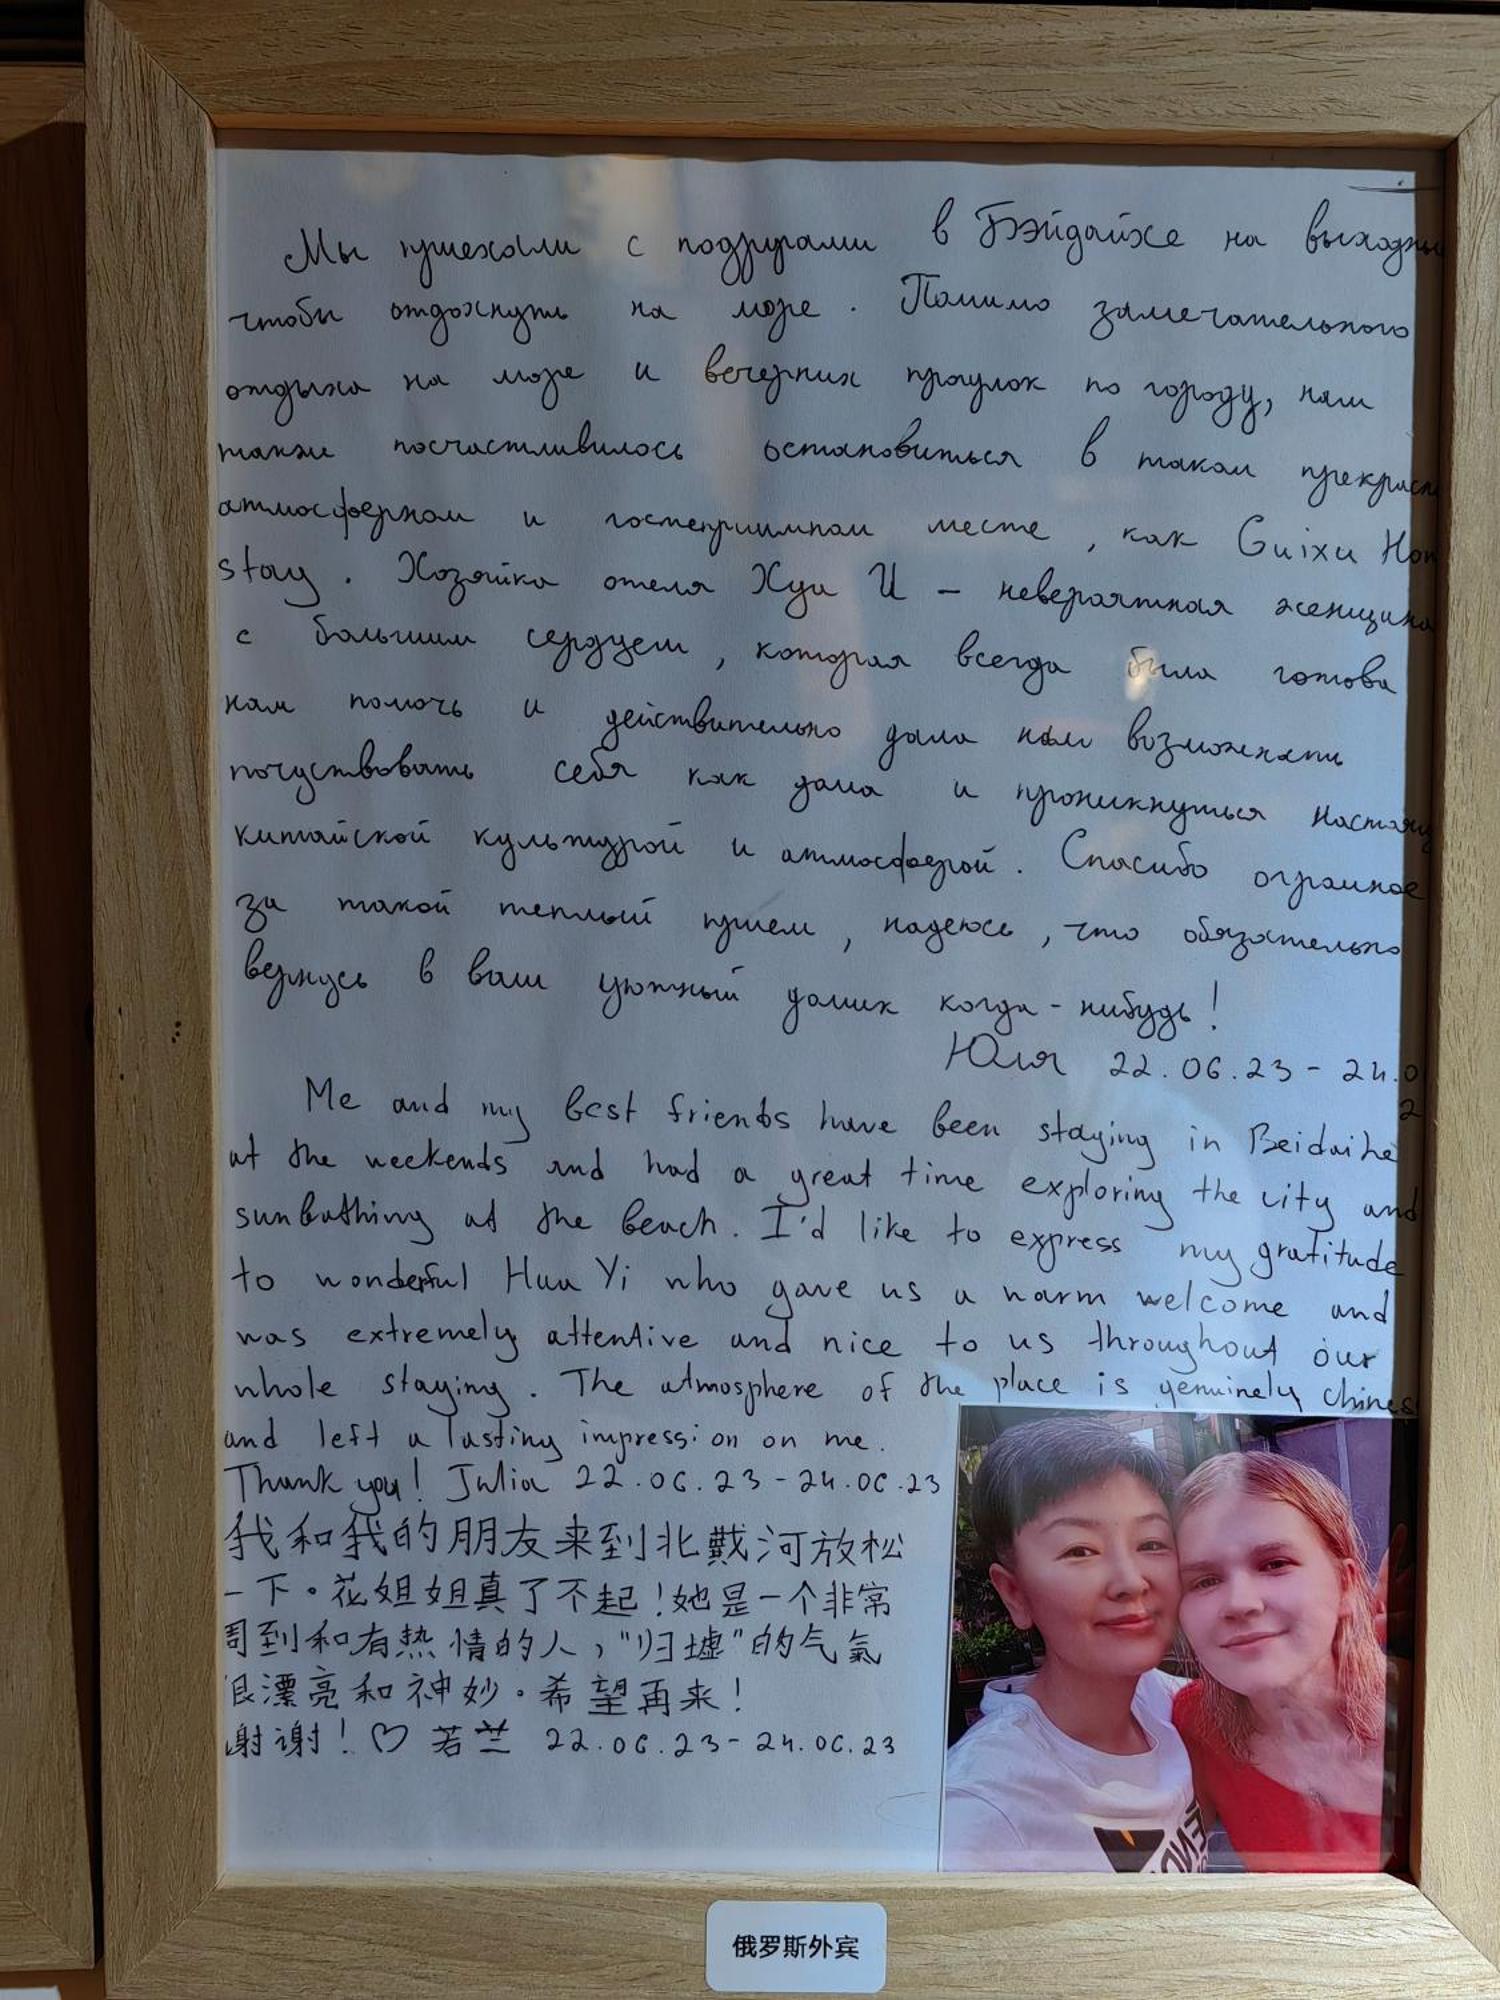 Мы приехали с подругами в Бэйдайхе на выходные
чтобы отдохнуть на море. Помимо замечательного
отдыха на море и вечерних прогулок по городу, нам
также посчастливилось остановиться в таком
атмосферном и гостеприимном месте, как Guixu
stay. Хозяйка отеля Хуа И - невероятная женщина
с большим сердцем, которая всегда была готова
нам помочь и действительно дала нам возможность
почуствовать себя как дома и проникнуться
китайской культурой и атмосферой. Спасибо огромное
за такой теплый прием, надеюсь, что обязательно
вернусь в ваш уютный домик когда-нибудь!
Юля 22.06.23 - 24.0
2
Me and my best friends have been staying in Beidaihe
at the weekends and had a great time exploring the city and
sunbathing at the beach. I'd like to express my gratitude
to wonderful Hua Yi who gave us a warm welcome and
was extremely attentive and nice to us throughout our
whole staying. The atmosphere of the place is genuinely chines
and left a lasting impression on me.
Thank you! Julia 22.06.23 - 24.06.23
我和我的朋友来到北戴河放松
一下。花姐姐真了不起！她是一个非常
周到和有热情的人，"归墟"的气氛
很漂亮和神妙。希望再来！
谢谢！♡ 若兰 22.06.23 - 24.06.23
俄罗斯外宾